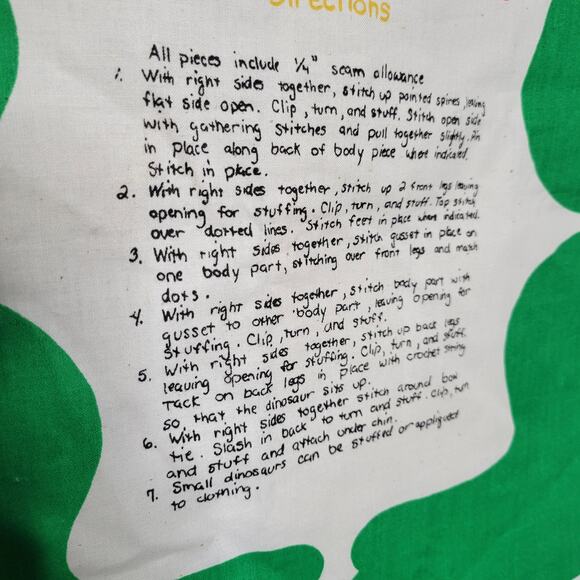 Directions
All pieces include 1/4" seam allowance
1. With right sides together, stitch up pointed spines, leaving
flat side open. Clip, turn, and stuff. Stitch open side
with gathering stitches and pull together slightly. Pin
in place along back of body piece where indicated.
Stitch in place.
2. With right sides together, stitch up 2 front legs leaving
opening for stuffing. Clip, turn, and stuff. Top stitch
over dotted lines. Stitch feet in place where indicated.
3. With right sides together, stitch gusset in place on
one body part, stitching over front legs and match
dots.
4. With right sides together, stitch body part with
gusset to other body part, leaving opening for
stuffing. Clip, turn, and stuff.
5. With right sides together, stitch up back legs
leaving opening for stuffing. Clip, turn, and stuff.
Tack on back legs in place with crochet string
so that the dinosaur sits up.
6. With right sides together stitch around bow
tie. Slash in back to turn and stuff. Clip, turn
and stuff and attach under chin.
7. Small dinosaurs can be stuffed or appliqued
to clothing.